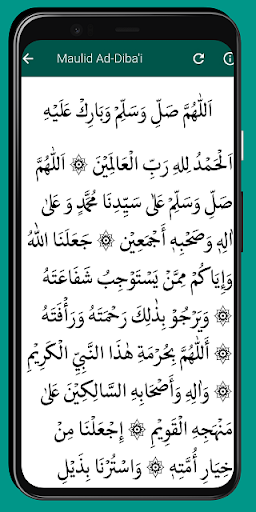 Maulid Ad-Diba'i
اَللّٰهُمَّ صَلِّ وَسَلِّمْ وَبَارِكْ عَلَيْهِ
اَلْحَمْدُ لِلهِ رَبِّ الْعَالَمِيْنَ ۞ اَللّٰهُمَّ
صَلِّ وَسَلِّمْ عَلٰى سَيِّدِنَا مُحَمَّدٍ وَ عَلىٰ
اٰلِهٖ وَصَحْبِهٖ أَجْمَعِيْنَ ۞ جَعَلَنَا اللهُ
وَإِيَاكُمْ مِمَّنْ يَسْتَوْجِبُ شَفَاعَتَهُ
۞ وَيَرْجُوْ بِذٰلِكَ رَحْمَتَهُ وَرَأْفَتَهُ
۞ أَللّٰهُمَّ بِحُرْمَةِ هٰذَا النَّبِيِّ الْكَرِيْمِ
۞ وَاٰلِهٖ وَأَصْحَابِهِ السَّالِكِيْنَ عَلىٰ
مَنْهَجِهِ الْقَوِيْمِ ۞ إِجْعَلْنَا مِنْ
خِيَارِ أُمَّتِهٖ ۞ وَاسْتُرْنَا بِذَيْلِ